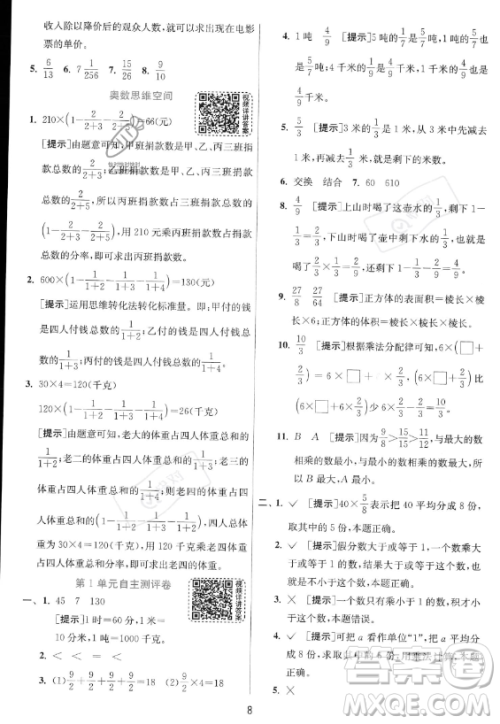 收入除以降价后的观众人数,就可以求出现在电影
票的单价。
5. 6/13 6. 7 1/256 7. 15/26 8. 9/10
奥数思维空间
视频详讲答案
1. 210×(1-2/(2+3)-2/(2+5))=66(元)
[提示]由题意可知,甲班捐款数是甲、乙、丙三班捐
款总数的2/(2+3),乙班捐款数是甲、乙、丙三班捐款
总数的2/(2+5),所以,用210元乘丙班捐款数占捐款
总数的分率,即可求出丙班捐款数。
2. 600×(1-1/(1+2)-1/(1+3)-1/(1+4))=130(元)
[提示]运用思维转化法转化标准量。即:甲付的钱
是四人付钱总数的1/(1+2);乙付的钱是四人付钱总数
的1/(1+3);丙付的钱是四人付钱总数的1/(1+4)。
3. 30×4=120(千克)
120×(1-1/(1+2)-1/(1+3)-1/(1+4))=26(千克)
[提示]由题意可知,老大的体重占四人体重总和的
1/(1+2),老二的体重占四人体重总和的1/(1+3),老三
的体重占四人体重总和的1/(1+4),则老四的体重占四
人体重总和的(1-1/(1+2)-1/(1+3)-1/(1+4)),四人体重总
和是30×4=120(千克),用乘法计算即可求出老四
的体重。
第1单元自主测评卷
视频详讲答案
一、1. 45 7 130 [提示]1时=60分,1米=
10分米,1吨=1000千克。
2. < < =
3. (1) 2/9+2/9+2/9+2/9 (2) 2/9×4=18
4. 5/9吨 4/9 [提示]5吨的1/9是5/9吨,1吨的
4/9是4/9吨。1千米的4/9是4/9千米,4千米的1/9是
4/9千米。
5. < [提示]3米的1/3是1米,3米的绳子先减去
1/3米,剩下的米数大于减去1/3剩下的米数。
6. 交换 结合 7. 60 610
8. 4/9 [提示]上山时喝了这壶水的1/3,剩下1-1/3
=2/3,下山时喝了壶中剩下水的1/3,剩下2/3×(1-1/3)=4/9。
9. 27/8 27/64 [提示]正方体的表面积=棱长×棱
长×6;正方体的体积=棱长×棱长×棱长。
10. 10/3 [提示]根据乘法分配律可知,6×(□+2/3)
=6×□+6×2/3,(6×□+6×2/3)-(6×□+
2/3)=6×□+6×2/3-6×□-2/3=10/3。
11. B A [提示]9/8>15/15>11/12,与大的数相
乘的数小,与小的数相乘的数大,且积相等,所
以B最大,A最小。
二、1. ✓ [提示]40×5/8表示把40平均分成8份,
取其中的5份,本题正确。
2. ✓ [提示]假分数大于或等于1,一个数乘大于
或等于1的数,积大于或等于这个数,本题正确。
3. × [提示]一个数只有乘小于1的数,积才小于
这个数,本题错误。
4. ✓ [提示]可把a看作单位“1”,把它平均分成8
份,求其中的5份是多少,用乘法计算,本题
正确。
5. ×
8